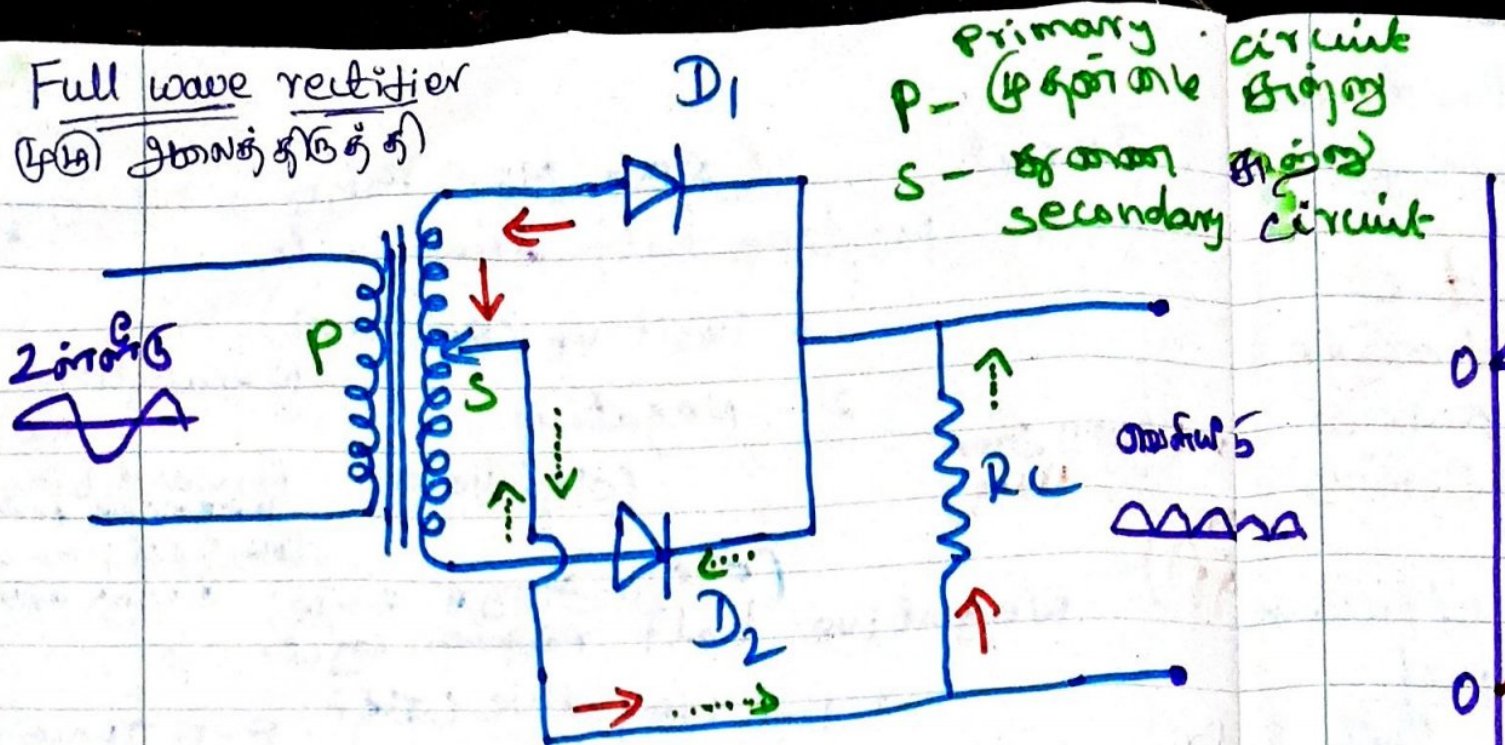 Full wave rectifier
முழு அலைத்திருத்தி
D1
primary circuit
P - முதன்மை சுற்று
S - துணை சுற்று
secondary circuit
உள்ளீடு
P
S
RL
வெளியீடு
D2
0
0